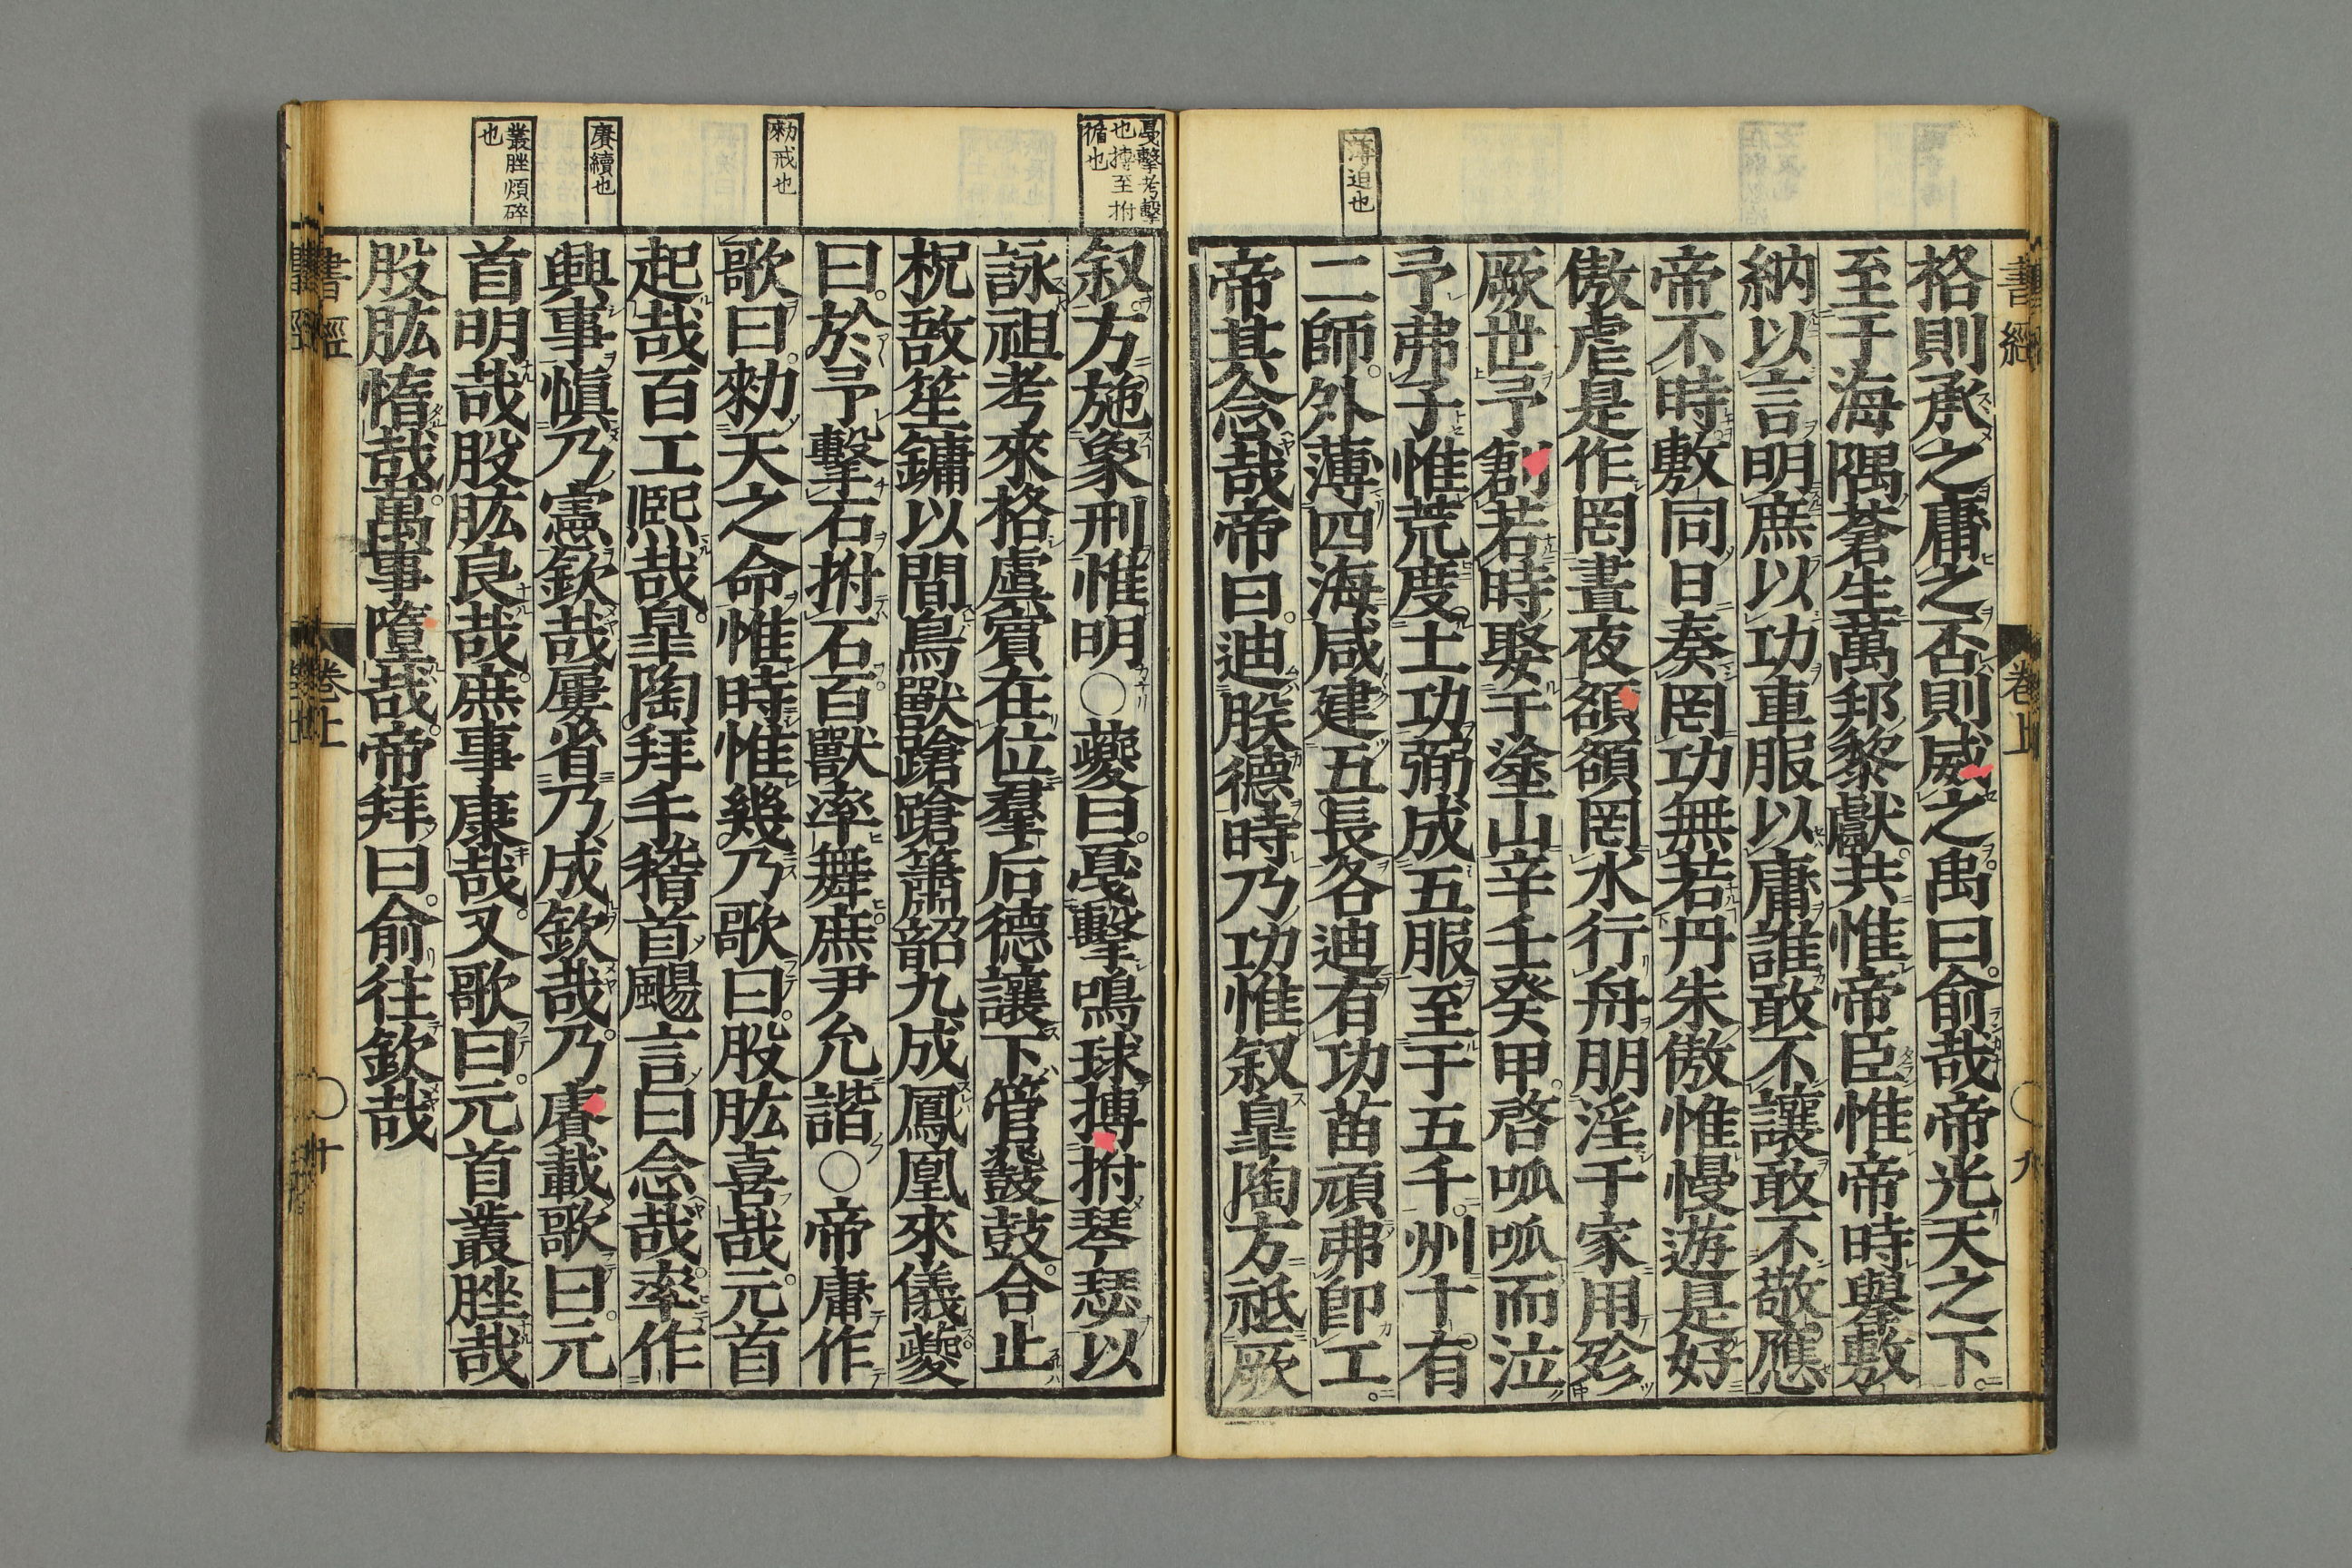 書經
卷上
九
薄迫也
格則承之庸之否則威之禹曰俞哉帝光天之下
至于海隅蒼生萬邦黎獻共惟帝臣惟帝時舉敷
納以言明庶以功車服以庸誰敢不讓敢不敬應
帝不時敷同日奏罔功無若丹朱傲惟慢遊是好
傲虐是作罔晝夜頟頟罔水行舟朋淫于家用殄
厥世予創若時娶于塗山辛壬癸甲啓呱呱而泣
予弗子惟荒度土功弼成五服至于五千州十有
二師外薄四海咸建五長各迪有功苗頑弗卽工
帝其念哉帝曰迪朕德時乃功惟叙皐陶方祗厥
戛擊考擊
也搏至拊
循也
勑戒也
賡續也
叢脞煩碎
也
叙方施象刑惟明○夔曰戛擊鳴球搏拊琴瑟以
詠祖考來格虞賓在位羣后德讓下管鼗鼓合止
柷敔笙鏞以間鳥獸蹌蹌簫韶九成鳳凰來儀夔
曰於予擊石拊石百獸率舞庶尹允諧○帝庸作
歌曰勑天之命惟時惟幾乃歌曰股肱喜哉元首
起哉百工熙哉皐陶拜手稽首颺言曰念哉率作
興事愼乃憲欽哉屢省乃成欽哉乃賡載歌曰元
首明哉股肱良哉庶事康哉又歌曰元首叢脞哉
股肱惰哉萬事墮哉帝拜曰俞往欽哉
書經
卷上
十